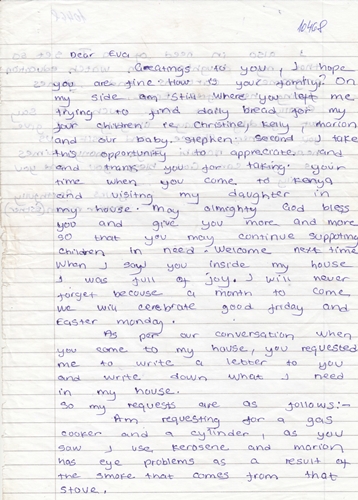 10468
Dear Eva.
Greetings to you, I hope
you are fine. How is your family. On
my side am still where you left me
trying to find daily bread for my
four children ie. Christine, Kelly, marion
and our baby stephen. Second I take
this opportunity to appreciate and
and thank you for taking your
time when you come to Kenya
and visiting my daughter in
my house. May almighty God bless
you and give you more and more
so that you may continue supporting
children in need. Welcome next time
When I saw you inside my house
I was full of joy. I will never
forget because a month to come
we will celebrate good friday and
Easter monday.
As per our conversation when
you come to my house, you requested
me to write a letter to you
and write down what I need
in my house.
So my requests are as follows:-
Am requesting for a gas
cooker and a cylinder, as you
saw I use kerosene and marion
has eye problems as a result of
the smoke that comes from that
stove.